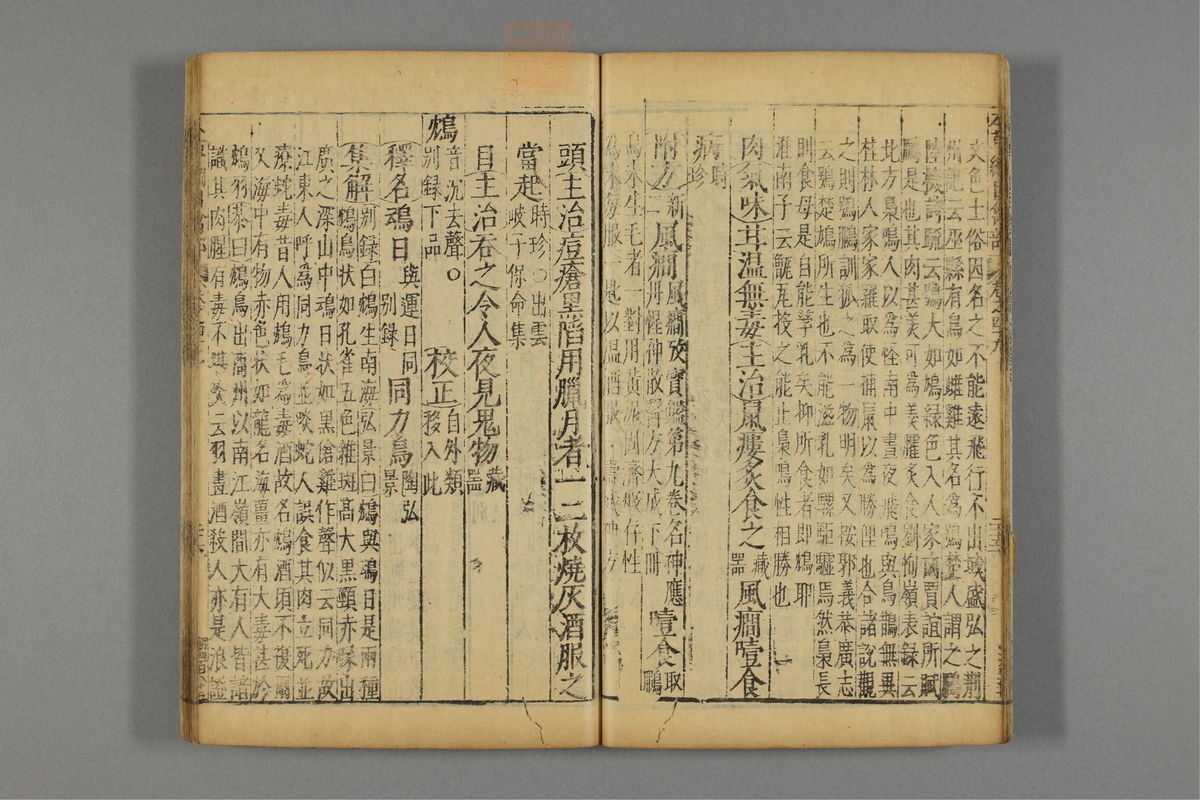 文色土俗因名之不能遠飛行不出域盛弘之荊
州記云巫縣有鳥如雌雞其名為鴞楚人謂之鵩
陸機詩疏云鴞大如鳩綠色入人家凶賈誼所賦
鵩是也其肉甚美可為羹臛炙食劉恂嶺表錄云
北方梟鳴人以為怪南中晝夜飛鳴與烏鵲無異
桂林人家家羅取使捕鼠以為勝狸也合諸說觀
之則鴞鵩訓狐之為一物明矣又按郭義恭廣志
云鴞楚鳩所生也不能滋乳如騾駏驉焉然梟長
則食母是自能孳乳矣抑所食者即鳩耶
淮南子云甑瓦投之能止梟鳴性相勝也
肉氣味甘溫無毒主治鼠瘻炙食之藏器風癎噎食
病時珍
附方新二風癎風癎攷寶鑑第九卷名神應
丹惺神散醫方大成下冊噎食取鵩
鳥未生毛者一對用黃泥固濟煅存性
為末每服一匙以溫酒服
頭主治痘瘡黑陷用臘月者一二枚燒灰酒服之
當起時珍○出雲岐子保命集
目主治吞之令人夜見鬼物藏器
鴆音沉去聲○別錄下品校正自外類移入此
釋名鴆日與運日同別錄同力鳥陶弘景
集解別錄曰鴆生南海弘景曰鴆與鴆日是兩種
鴆鳥狀如孔雀五色雜斑高大黑頸赤喙出
廣之深山中鴆日狀如黑傖雞作聲似云同力故
江東人呼為同力鳥並啖蛇人誤食其肉立死並
療蛇毒昔人用鴆毛為毒酒故名鴆酒頃不復爾
又海中有物赤色狀如龍名海薑亦有大毒甚於
鴆羽恭曰鴆鳥出商州以南江嶺間大有人皆諳
識其肉腥有毒不堪啖云羽畫酒殺人亦是浪證